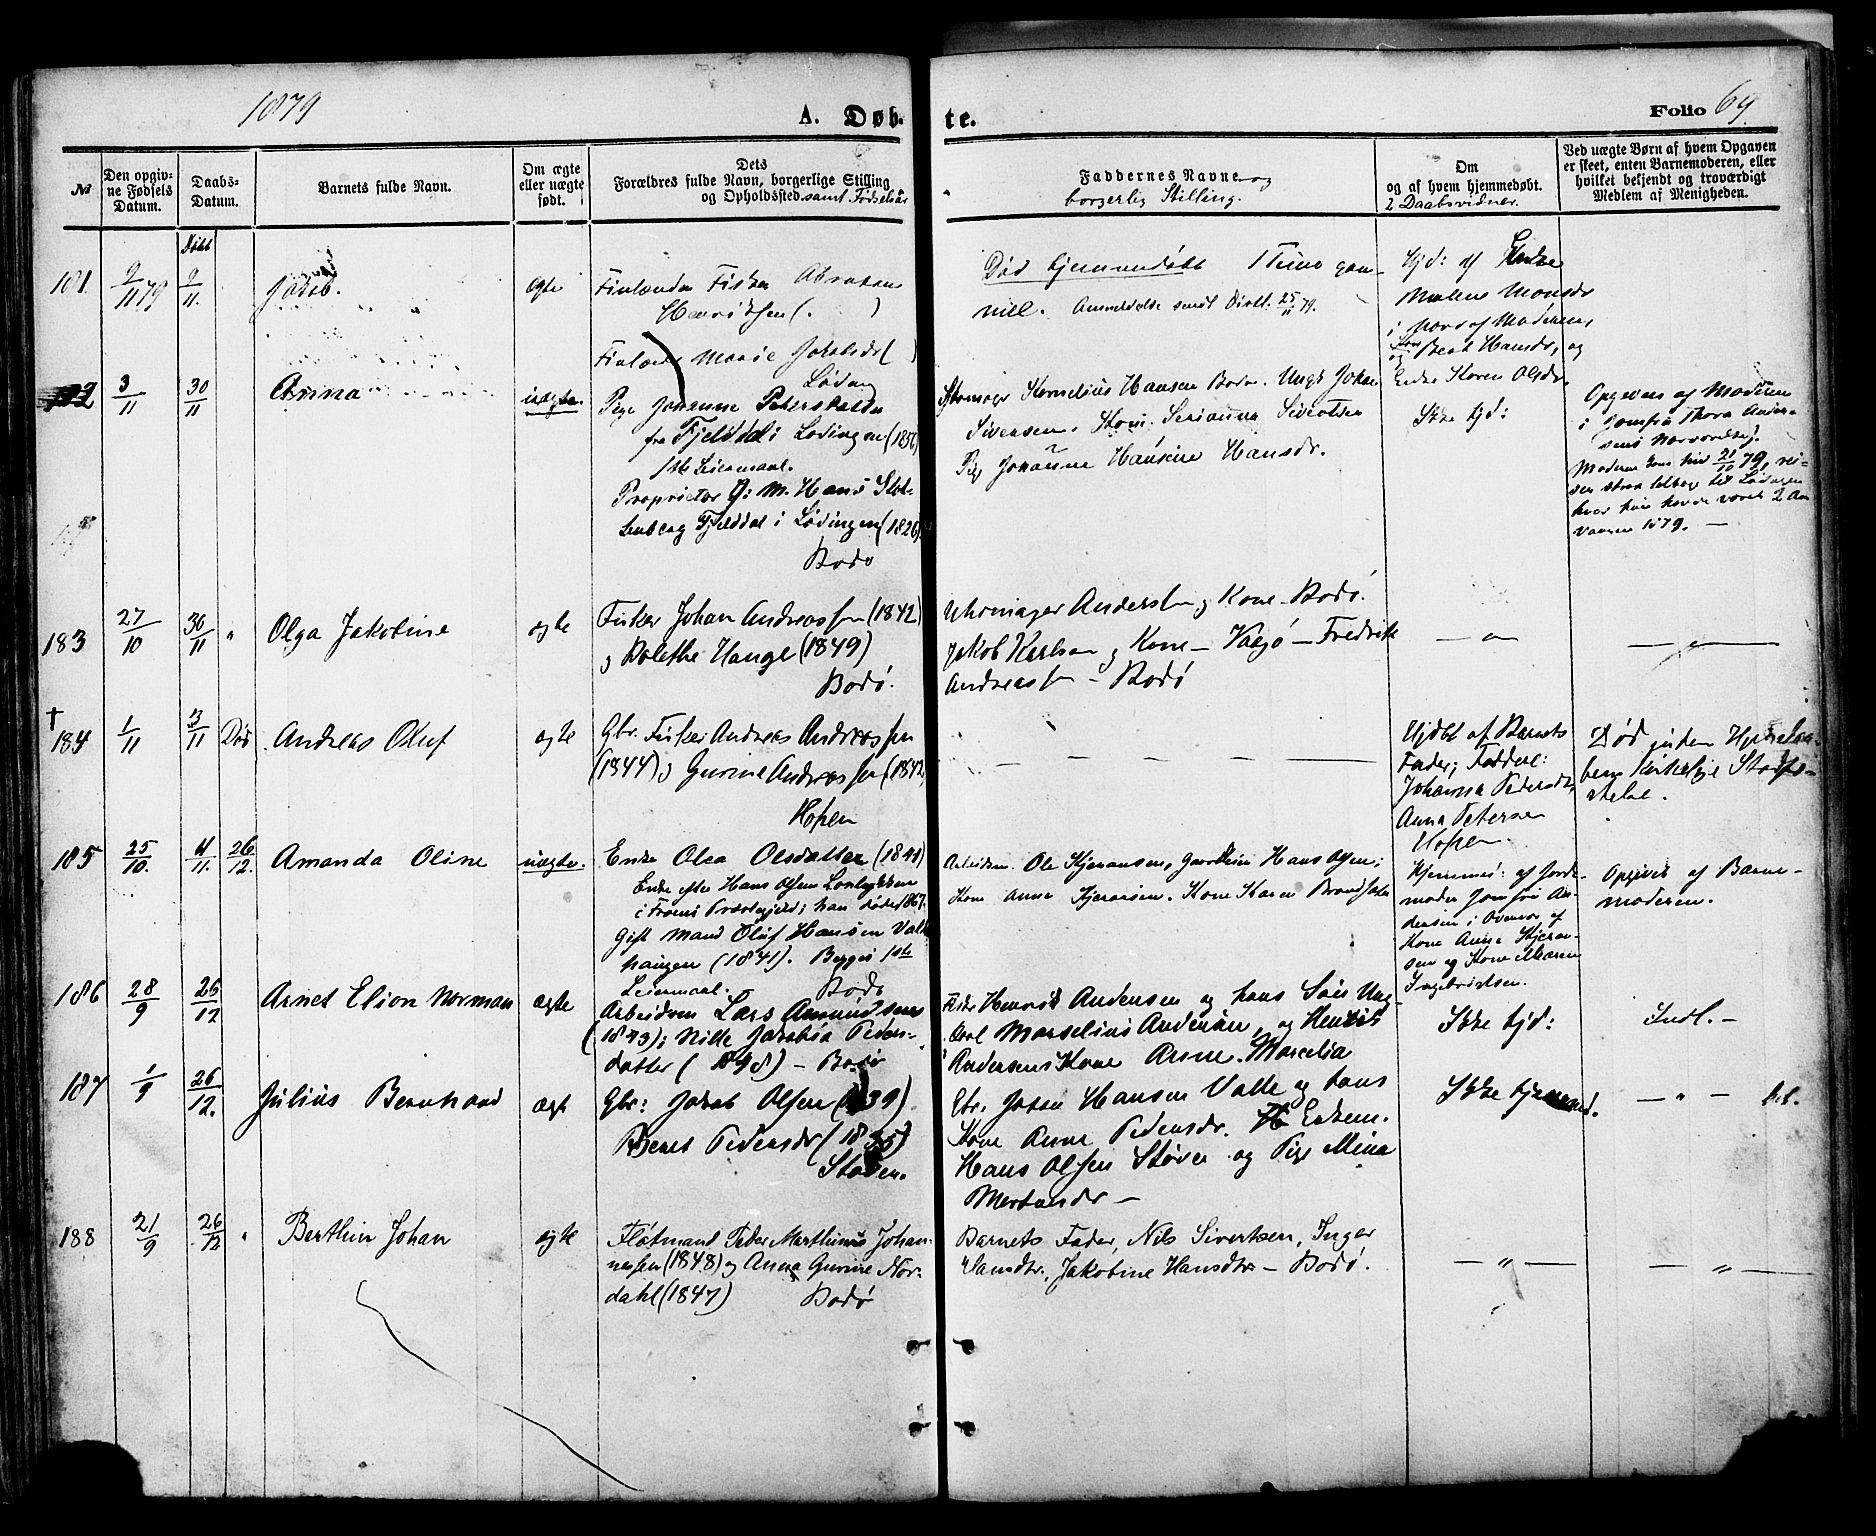 1879
A. Døb-
te.
Folio 69.
№
Den opgiv-
ne Fødsels
Datum.
Daabs-
Datum.
Barnets fulde Navn.
Om ægte
eller uægte
født.
Dets
Forældres fulde Navn, borgerlige Stilling
og Opholdssted. samt Fødselsår
Faddernes Navne og
borgerlig Stilling.
Om
og af hvem hjemmedøbt.
2 Daabsvidner.
Ved uægte Børn af hvem Opgaven
er skeet, enten Barnemoderen, eller
hvilket bekjendt og troværdigt
Medlem af Menigheden.
181. 9/11 79 9/11. Jakob. ægte
Fisker Abraham
Død hjemmedøbt 1 Time gam-
mel. Anmeldelse sendt 25/11 79.
Hjd: af Enke
Malene Monsdr
i nærv af Moderen,
Berit Hansdr, og
Enke Karen Olsdr.
Marie Jakobsdr ( )
Løding
182 3/11 30/11 Anna uægte.
Pige Johanne Petersdatter
fra Fjelddal i Lødingen (1856)
1ste Leiermaal.
Proprietør G: M. Hans
Fjelddal i Lødingen (1826).
Bodø
Kornelius Hansen Bodø. Ungk Johan
Sivertsen. Kone Serianna Sivertsen
Pige Johanne Hansine Hansdr.
Ikke hjd:
Opgeven af Moderen
i Jomfru Thora Ander-
sens Nærværelse.
Moderen kom hid 21/10 79, rei-
ser strax tilbage til Lødingen
hvor hun havde været 2 Aar
Vaaren 1879. —
183 27/10 30/11 " Olga Jakobine ægte
Fisker Johan Andreassen (1842)
og Bolethe Hauge (1849)
Bodø.
Uhrmager Anderssen og Kone Bodø.
Jakob Karlsen og Kone — Valsjø — Fredrik
Andreassen — Bodø
— " —
— " —
†
184 1/11 3/11 Død Andreas Oluf ægte
Gbr. Fisker Andreas Andreassen
(1844) og Gurine Andreassen (1842)
Hopen
— — — — —
Hjdbt af Barnets
Fader; Faddere:
Johanna Pedersdtr,
Anna Petersen
Hopen.
Død uden Hjemmedaa-
bens kirkelige Stadfæ-
stelse.
185 25/10. 4/11. 26/12. Amanda Oline uægte.
Enke Olea Olsdatter (1841)
Enke efter Hans Olsen
i Præstegjeld; han døde 1867.
Gift Mand Oluf Hansen Vold-
haugen (1841). Begges 1ste
Leiermaal. Bodø
Arbeidsm. Ole Kjeransen, Hans Olsen;
Kone Anne Kjeransen. Kone Karen
Hjemmed: af Jorde-
moder Jomfru An-
dersen i Overvær af
Kone Anna Kjeran-
sen og Kone Maren
Ingebrigtsen.
Opgivet af Barne-
moderen.
186 28/9 26/12 Arnet Elion Norman ægte
Arbeidsm Lars Amundsen
(1843); Nille Jakobia Peders-
datter (1848) — Bodø
Fisker Henrik Andersen og hans Søn Ung-
karl Marselius Andersen, og Henrik
Andersens Kone Anne Marcelia
Ikke hjd:
Indl. —
187 1/9 26/12. Julius Bernhard ægte
Gbr: Jakob Olsen (1839)
Berit Pedersdr (1835)
Støver.
Gbr. Johan Hansen Valle og hans
Kone Anne Pedersdr. Enkem.
Hans Olsen Støver og Pige Mina
Mortensdr —
Ikke hjemmed.
— " —
188 21/9 26/12 " Berthin Johan ægte
Fløtmand Peder Marthinus Johan-
nesen (1848) og Anna Gurine Nor-
dahl (1847) Bodø
Barnets Fader, Nils Sivertsen, Inger
Hansdtr., Jakobine Hansdtr — Bodø.
— " —
— " —